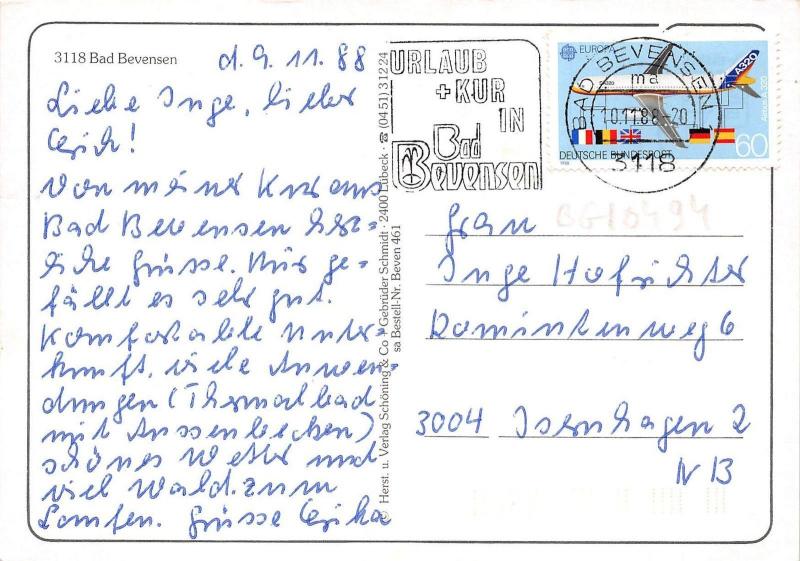 3118 Bad Bevensen
d. 9.11.88
Liebe Inge, lieber
Erich!
Von meiner Kur aus
Bad Bevensen herz-
liche Grüsse. Mir ge-
fällt es sehr gut.
Komfortable Unter-
kunft, viele Anwen-
dungen (Thermalbad
mit Aussenbecken)
schönes Wetter und
viel Wald zum
Laufen. Grüsse Erika
© Herst. u. Verlag Schöning & Co · Gebrüder Schmidt · 2400 Lübeck · ☎ (04 51) 3 12 24
sa Bestell-Nr. Beven 461
URLAUB
+ KUR
IN
Bad
Bevensen
BAD BEVENSEN 1
ma
10.11.88-20
3118
EUROPA
A320
Airbus A 320
DEUTSCHE BUNDESPOST
60
BG10494
Frau
Inge Hofichter
3004 Isernhagen 2
NB